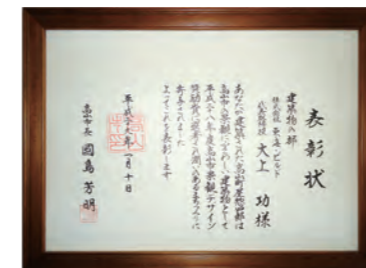 表彰状
建築物の部
株式会社 東海ビルド
代表取締役 大上 功様
あなたが建築された高山町屋惣四郎は
高山市の景観にふさわしい建築物として
平成二十八年度高山市景観デザイン
よってこれを表彰します
平成二十九年一月十日
高山市長 國島 芳明